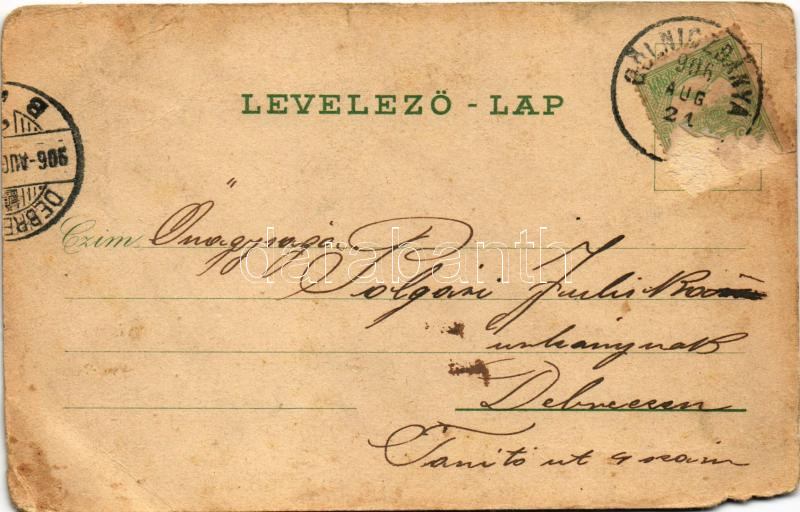 LEVELEZŐ - LAP
GÖLNICZBÁNYA
906
AUG
21
B
906-AUG
DEBRE
Czim Őnagysága
Polgári Juliska
urhánynak
Debreczen
Tanító ut 4 szám
darabanth